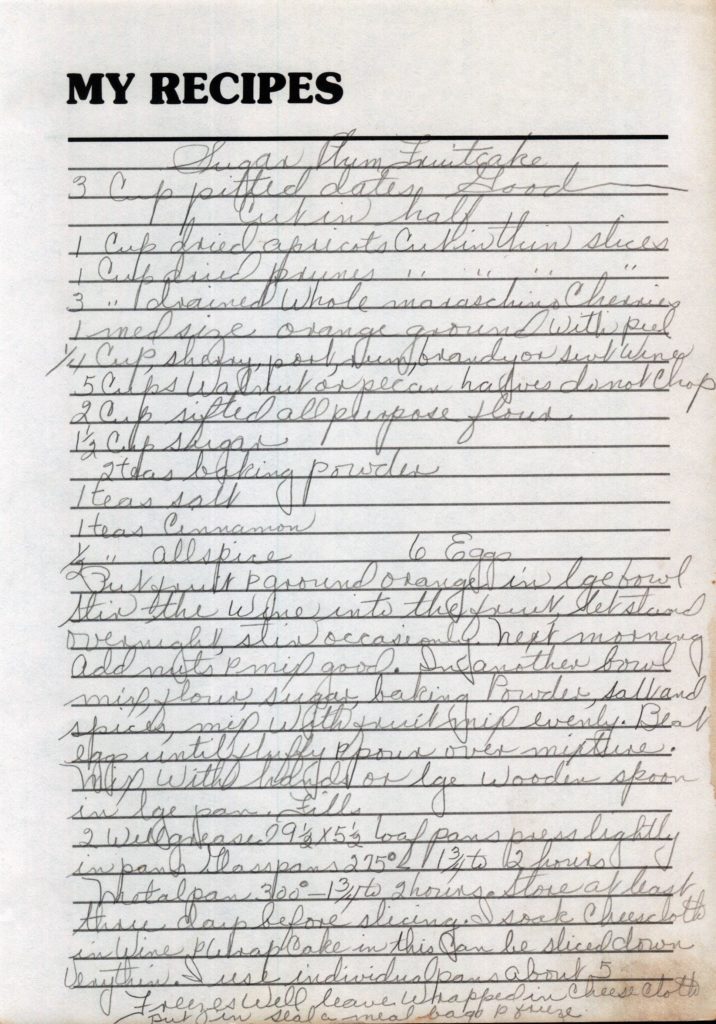 MY RECIPES
Sugar Plum Fruitcake
3 Cup pitted dates Good
Cut in half
1 Cup dried apricots Cut in thin slices
1 Cup dried prunes " " " "
3 " drained Whole maraschino Cherries
1 med size orange ground With peel
1/4 Cup, sherry, port, rum, brandy or swt Wine
5 Cups Walnut or pecan halves do not Chop
2 Cup sifted all purpose flour.
1 1/2 Cup sugar
2 teas baking powder
1 teas salt
1 teas Cinnamon
1/2 " allspice 6 Eggs
Put fruit & ground orange in lge bowl
Stir the Wine into the fruit, let stand
overnight, stir occasionly. Next morning
add nuts & mix good. In another bowl
mix, flour, sugar, baking Powder, salt and
spices, mix With fruit mix evenly. Beat
eggs until fluffy & pour over mixture.
Mix With hands or lge Wooden spoon
in lge pan. Fills
2 Well grease 9 1/2 X 5 1/2 loaf pans press lightly
in pans Glass pans 275° - 1 3/4 to 2 hours
Metal pan 300° - 1 3/4 to 2 hours. Store at least
three days before slicing. I soak Cheesecloth
in Wine & Wrap Cake in this Can be sliced down
Very thin. I use individual pans about 5
Freezes Well leave Wrapped in Cheese Cloth
put in seal a meal bags & freeze.